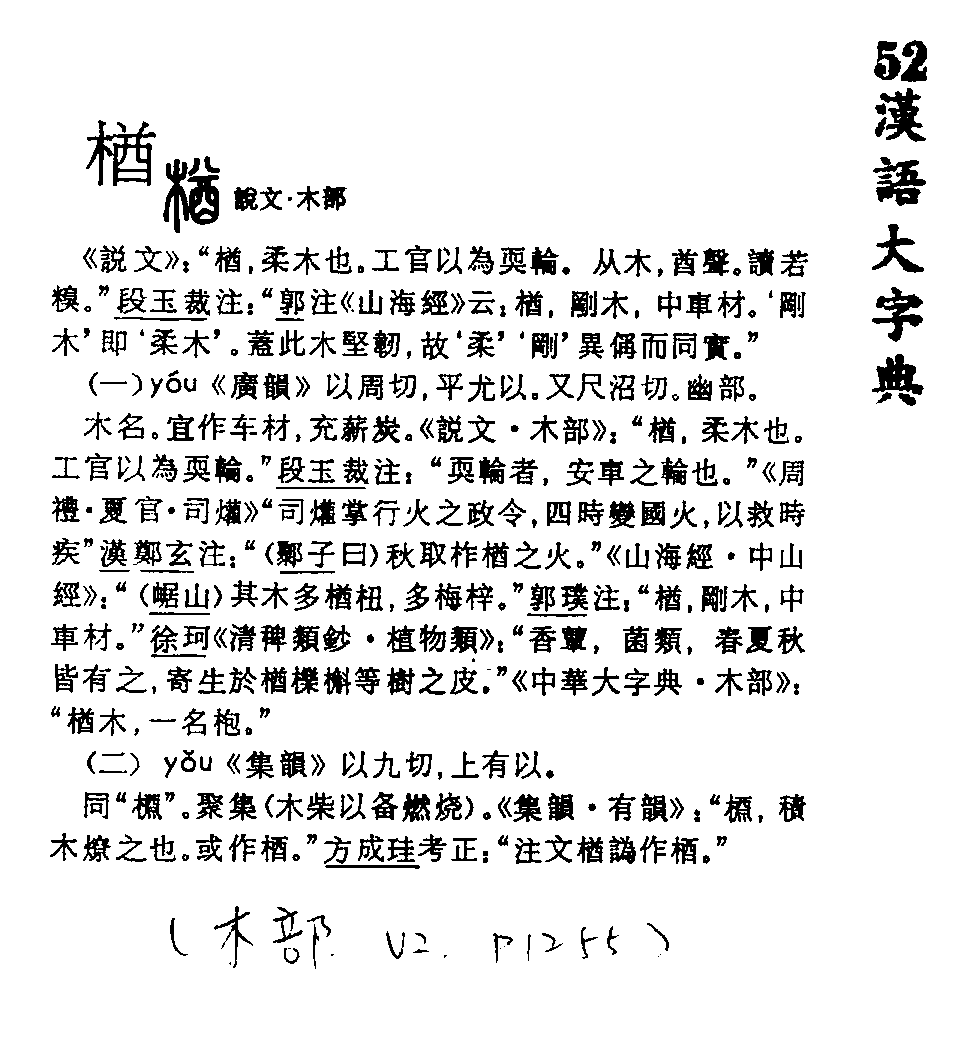 52漢語大字典
楢
楢 說文·木部
《説文》：“楢，柔木也。工官以為耎輪。从木，酋聲。讀若
糗。”段玉裁注：“郭注《山海經》云：楢，剛木，中車材。‘剛
木’即‘柔木’。蓋此木堅韌，故‘柔’‘剛’異偁而同實。”
（一）yóu《廣韻》以周切，平尤以。又尺沼切。幽部。
木名。宜作车材，充薪炭。《説文·木部》：“楢，柔木也。
工官以為耎輪。”段玉裁注：“耎輪者，安車之輪也。”《周
禮·夏官·司爟》“司爟掌行火之政令，四時變國火，以救時
疾”漢鄭玄注：“（鄹子曰）秋取柞楢之火。”《山海經·中山
經》：“（崌山）其木多楢杻，多梅梓。”郭璞注：“楢，剛木，中
車材。”徐珂《清稗類鈔·植物類》：“香蕈，菌類，春夏秋
皆有之，寄生於楢檪槲等樹之皮。”《中華大字典·木部》：
“楢木，一名枹。”
（二）yǒu《集韻》以九切，上有以。
同“槱”。聚集（木柴以备燃烧）。《集韻·有韻》：“槱，積
木燎之也。或作栖。”方成珪考正：“注文楢譌作栖。”
（木部 V2. P1255）